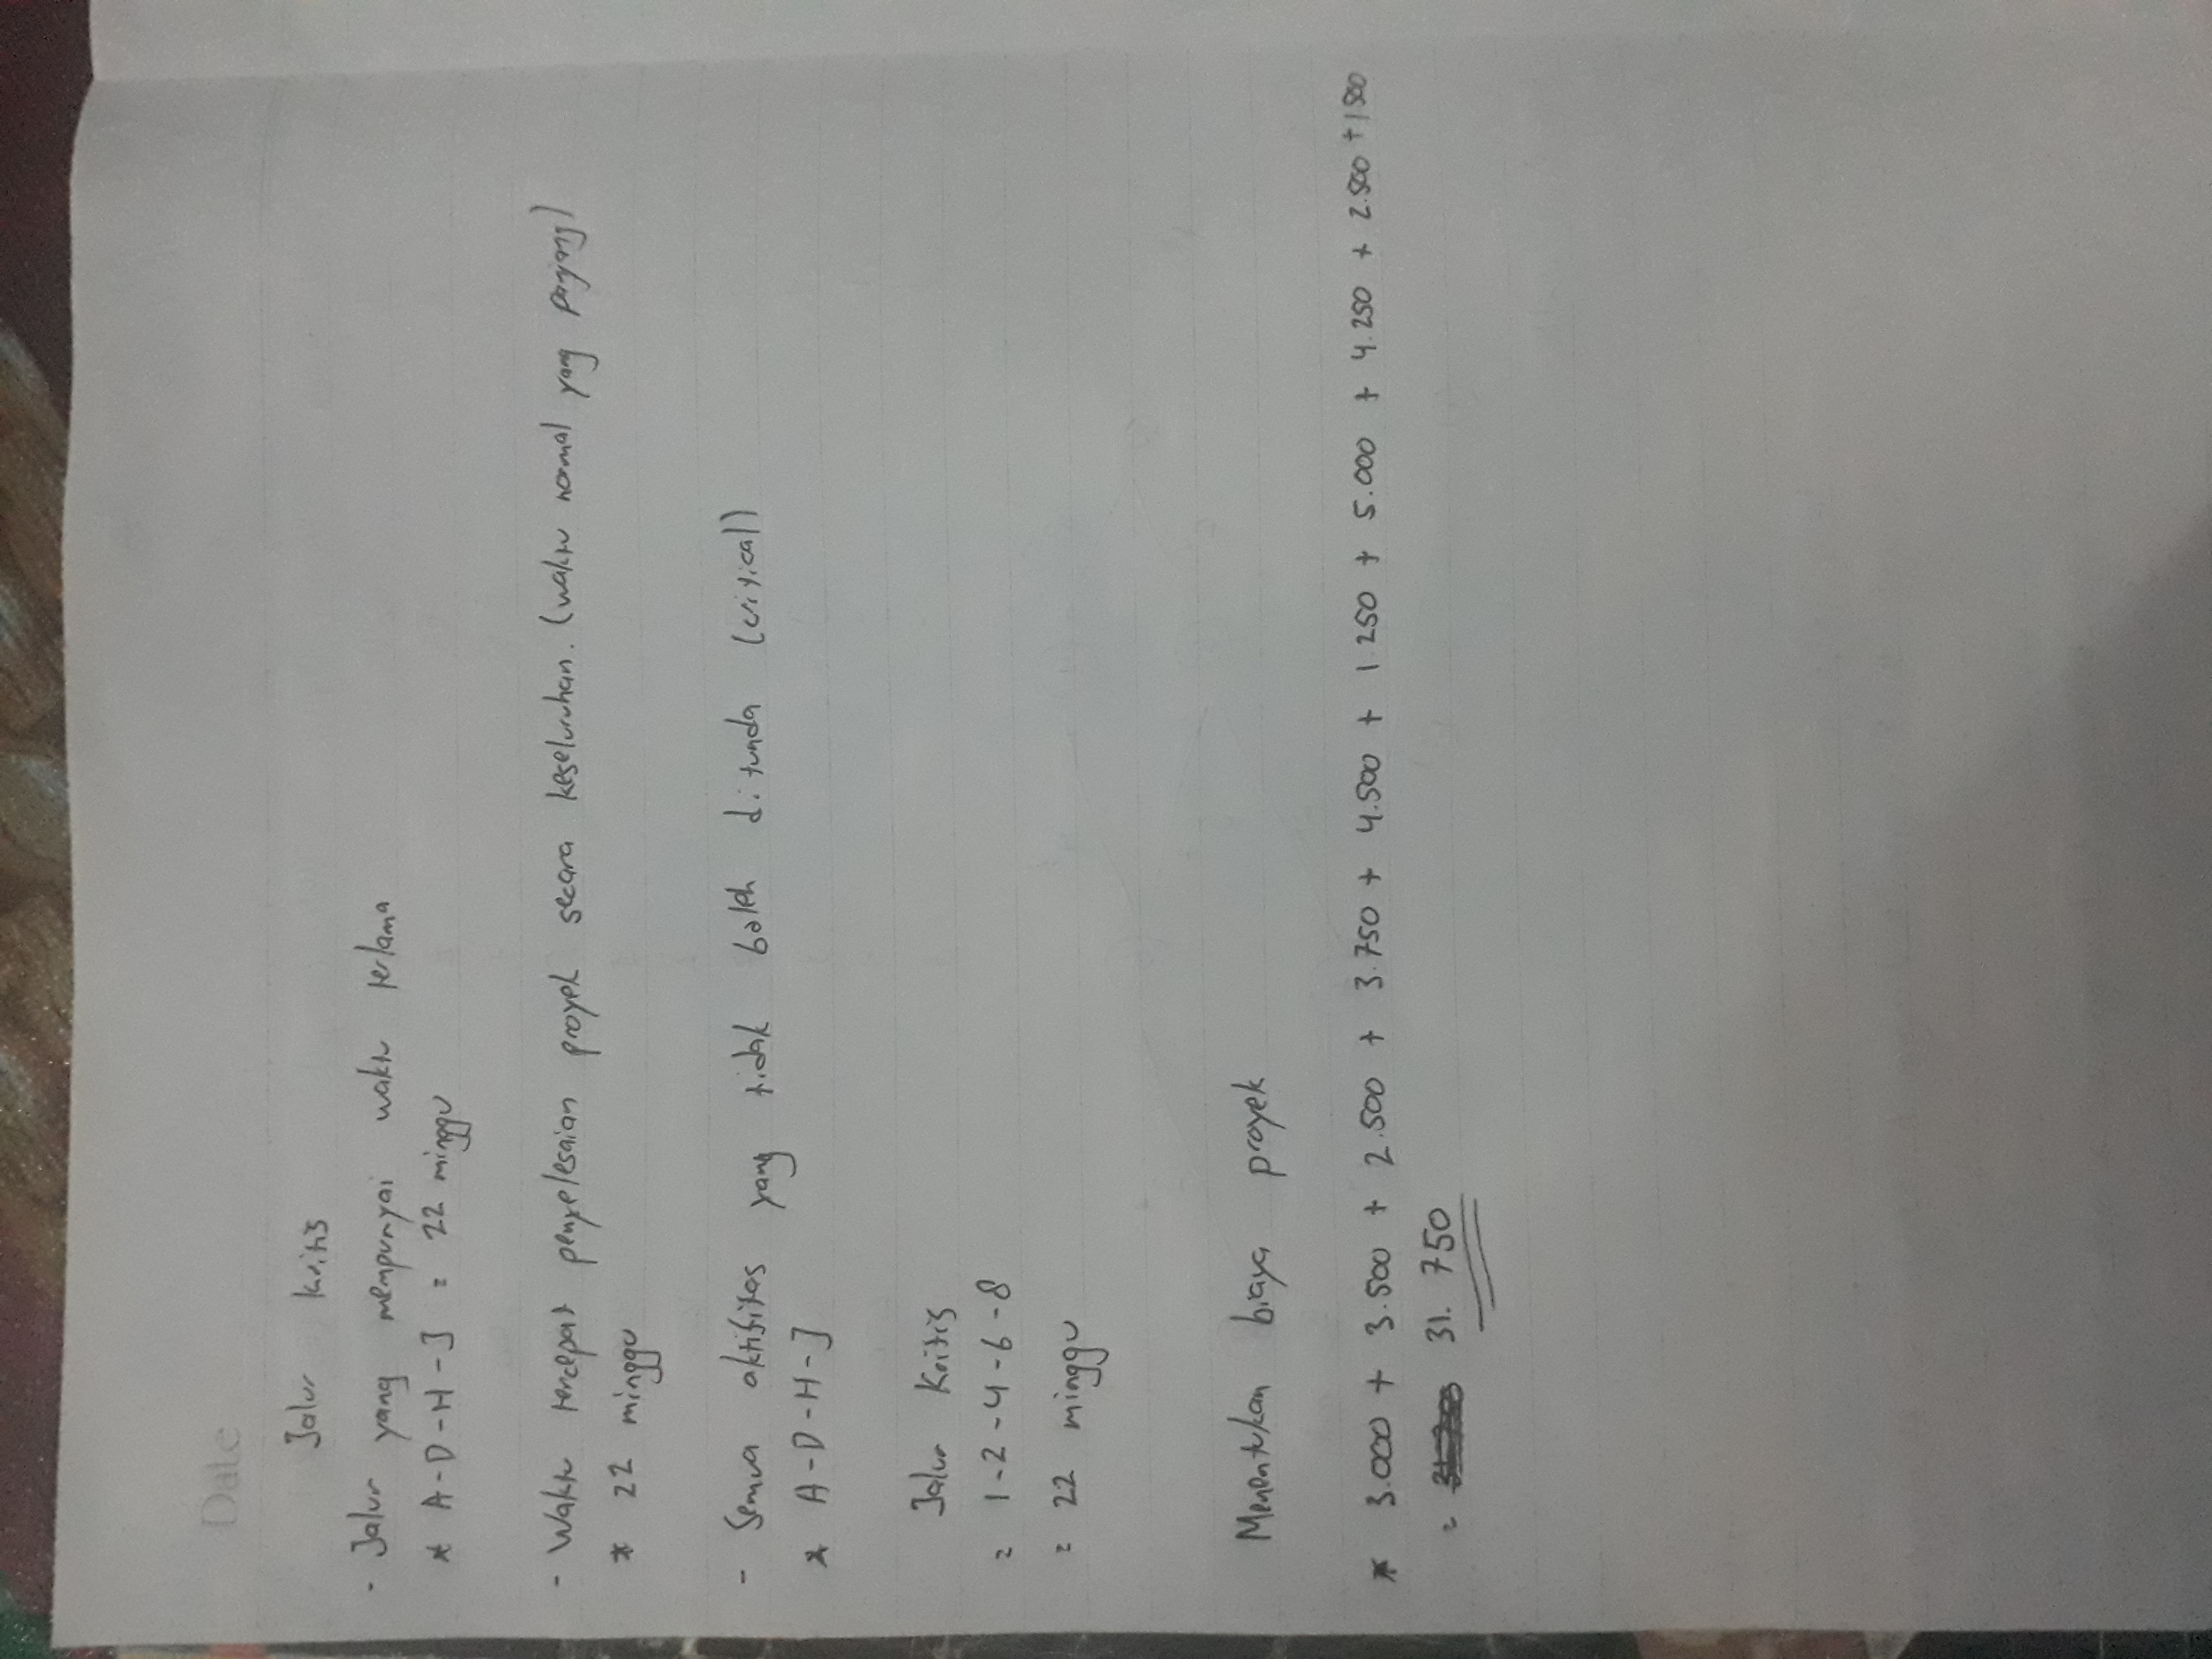 Date
Jalur kritis
- Jalur yang mempunyai waktu terlama
* A-D-H-J = 22 minggu
- Waktu tercepat penyelesaian proyek secara keseluruhan. (waktu normal yang panjang)
* 22 minggu
- Semua aktifitas yang tidak boleh ditunda (critical)
* A-D-H-J
Jalur Kritis
= 1-2-4-6-8
= 22 minggu
Menentukan biaya proyek
* 3.000 + 3.500 + 2.500 + 3.750 + 4.500 + 1.250 + 5.000 + 4.250 + 2.500 + 1500
= 31.750